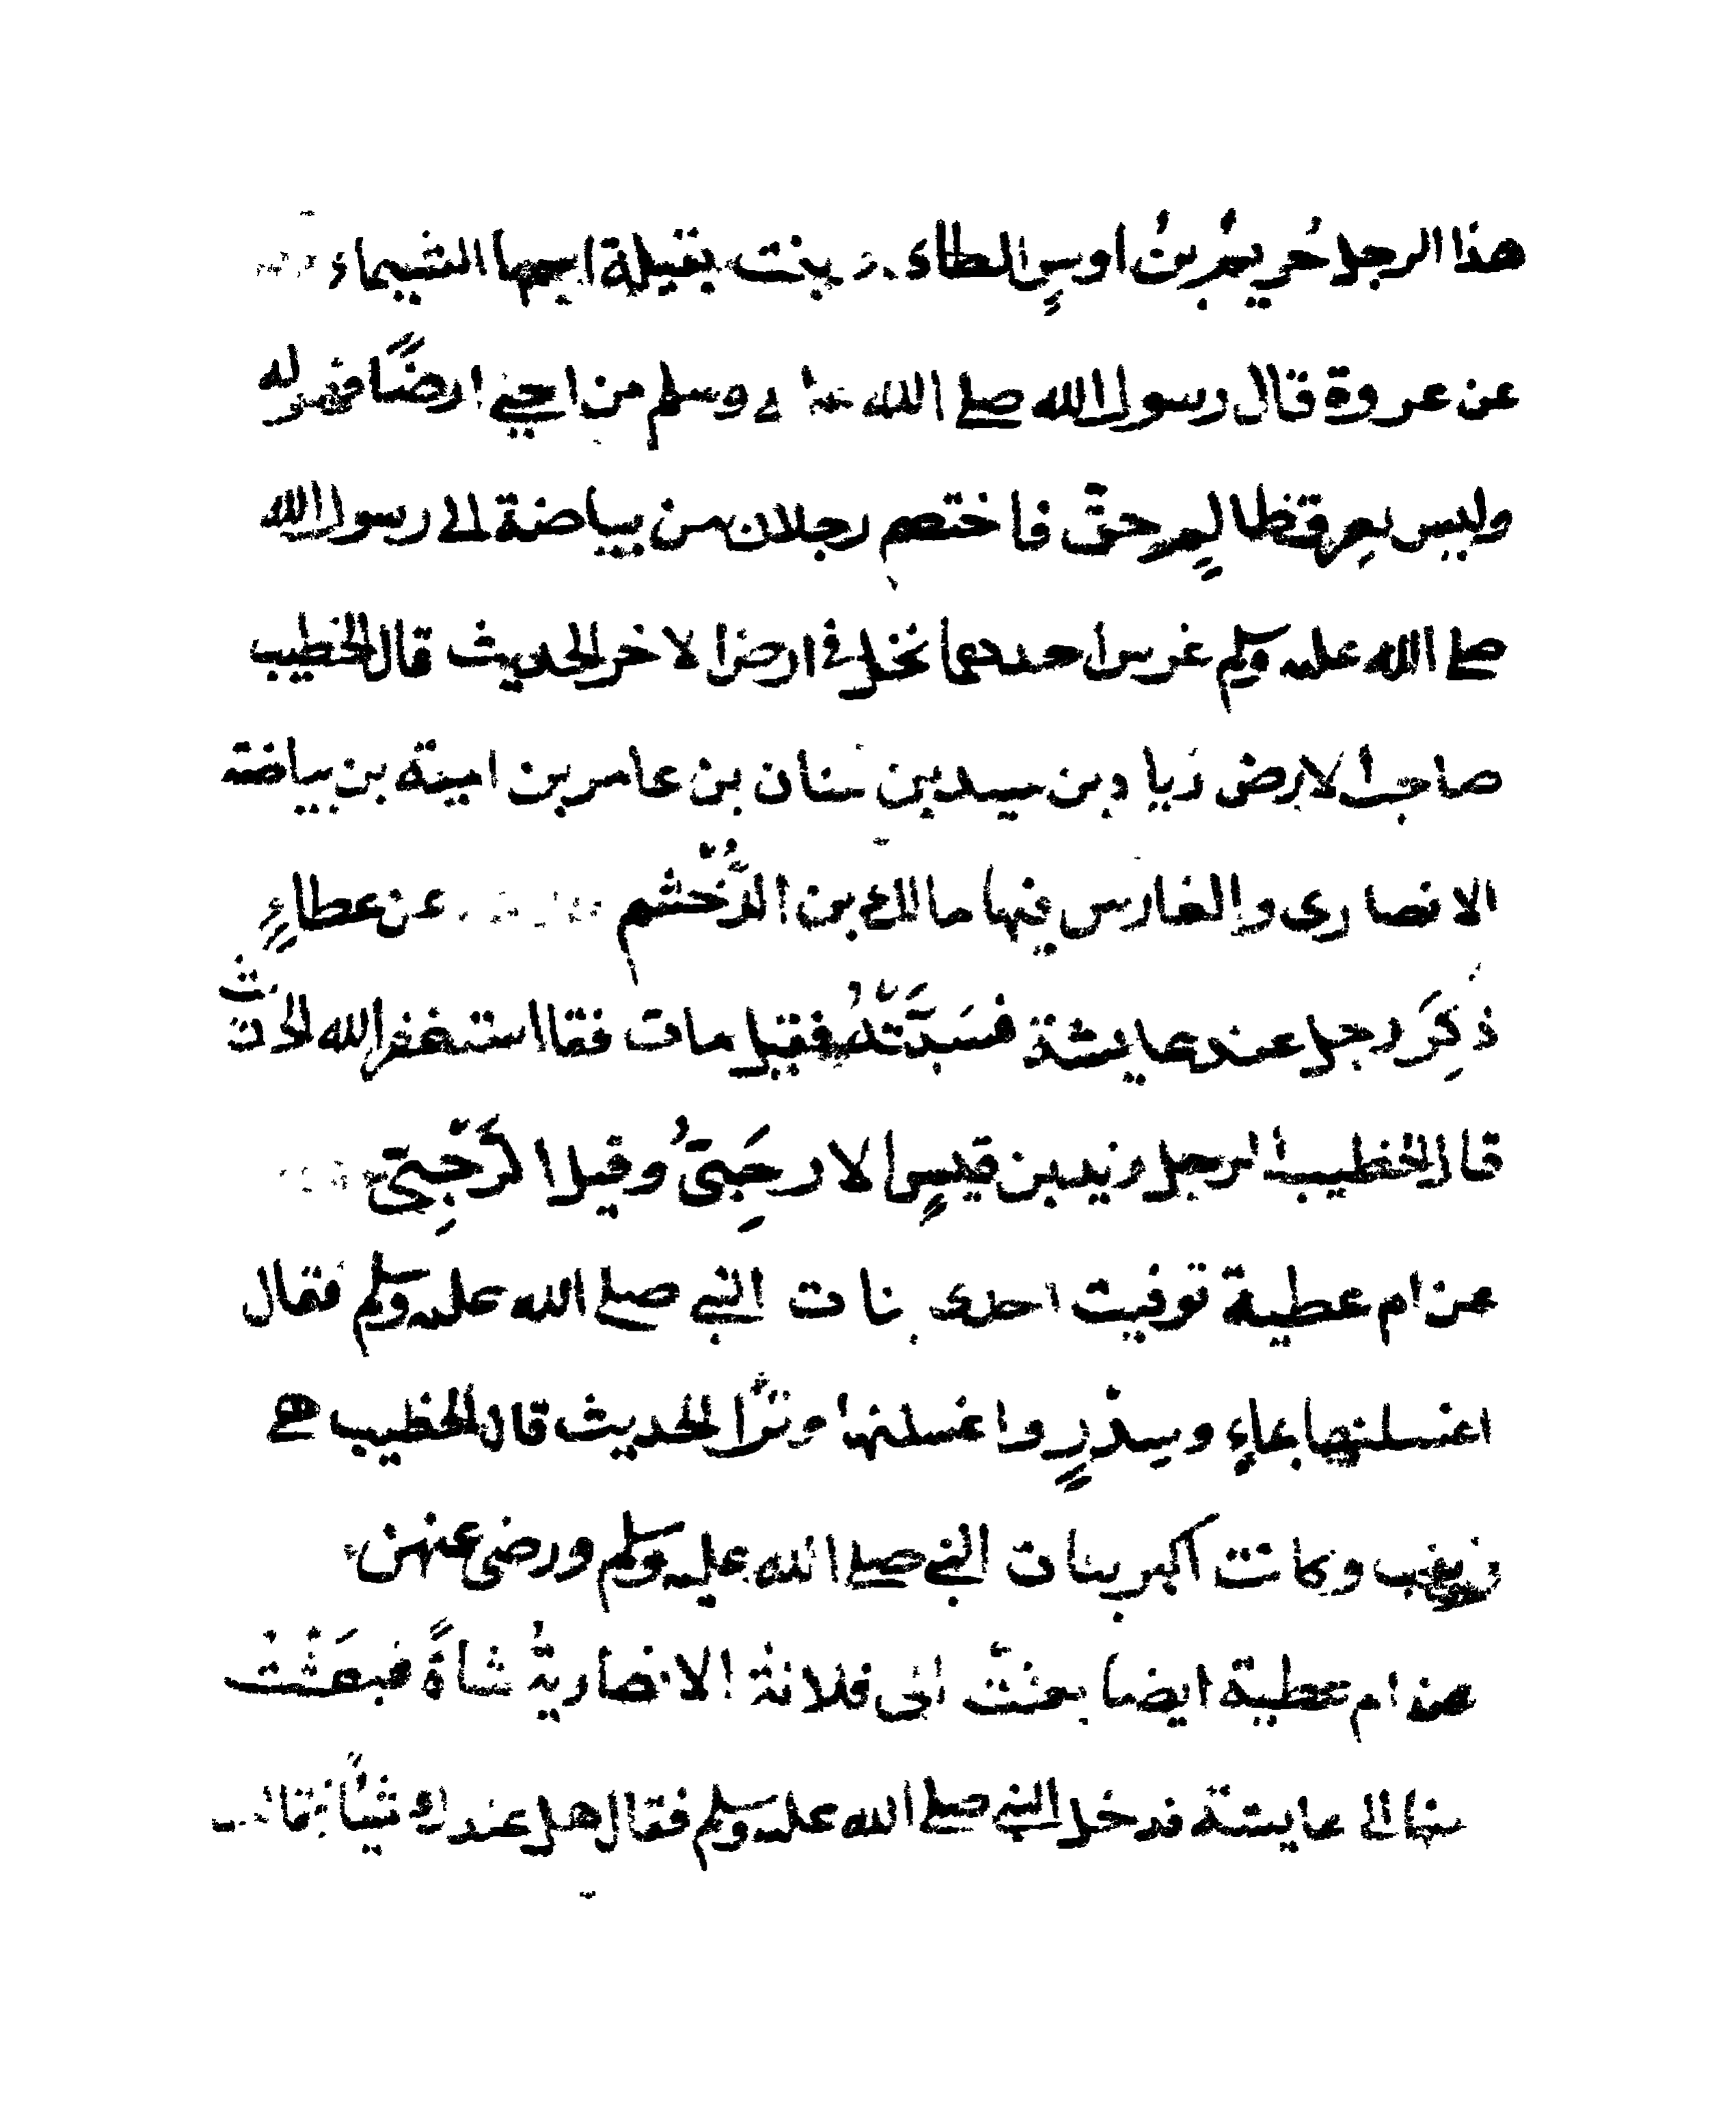 هذا الرجل خُريمُ بنُ اوسٍ الطاءى بنت بقيلة اسمها الشيماء
عن عروة قال رسول الله صلى الله عليه وسلم من احيى ارضًا فهو له
وليس لعرق ظالمٍ حقّ فاختصم رجلان من بياضة الى رسول الله
صلى الله عليه وسلم غرس احدهما نخل فى ارض الاخر الحديث قال الخطيب
صاحب الارض زياد بن لبيد بن سنان بن عامر بن امية بن بياضة
الانصارى والغارس فيها مالك بن الدُّخْشم عن عطاءٍ
ذُكِرَ رجل عند عايشة فسَبَّتْهُ فقيل مات فقا استغفر الله الحديث
قال الخطيب الرجل يزيد بن قيسٍ الارحَبِىُّ وقيل الاَرْحَبِى
عن ام عطية توفيت احدى بنات النبى صلى الله عليه وسلم فقال
اغسلنها بماءٍ وسِدْرٍ واغسلنها وترًا الحديث قال الخطيب هى
زينب وكانت اكبر بنات النبى صلى الله عليه وسلم ورضى عنهن
عن ام عطية ايضا بعثت الى فلانة الانصاريةُ شاةً فبعَثْتْ
منها الى عايشة فدخل النبى صلى الله عليه وسلم فقال هل عندك شيئًا فقالت